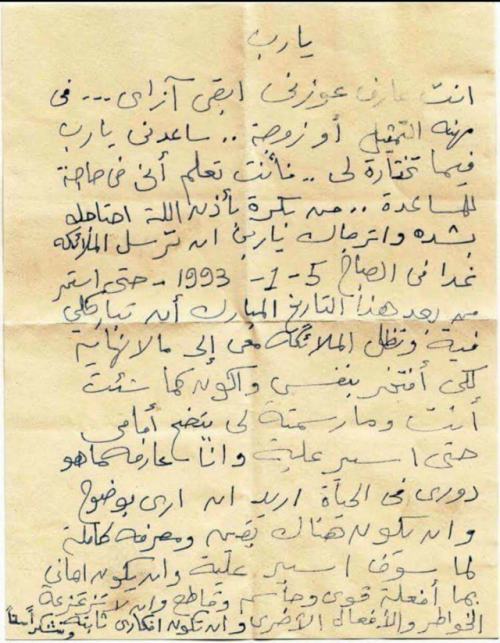 يارب
انت عارف عوزنى ابقى آزاى --- فى
مهنه التمثيل أو زوجة .. ساعدنى يارب
فيما تختارة لى .. فأنت تعلم أنى فى حاجة
للمساعدة .. من بكرة بأذن اللة احتاجله
بشده واترجاك يارب ان ترسل الملائكه
غدا فى الصباح 5-1-1993 - حتى استمر
من بعد هذا التاريخ المبارك أن تباركلي
فية وتظل الملائكة معى إلى مالانهاية
لكى أفتخر بنفسى واكون كما شئت
أنت ومارسمتة لى يتضح أمامى
حتى اسير علية وانا عارفه ماهو
دورى فى الحياة اريد ان ارى بوضوح
وان يكون هناك يقين ومعرفه كاملة
لما سوف اسير علية وان يكون ايمانى
بما أفعلة قوى وحاسم وقاطع وان لا تزعزعة
الخواطر والأفعال الأخرى وان تكون افكارى ثابتة